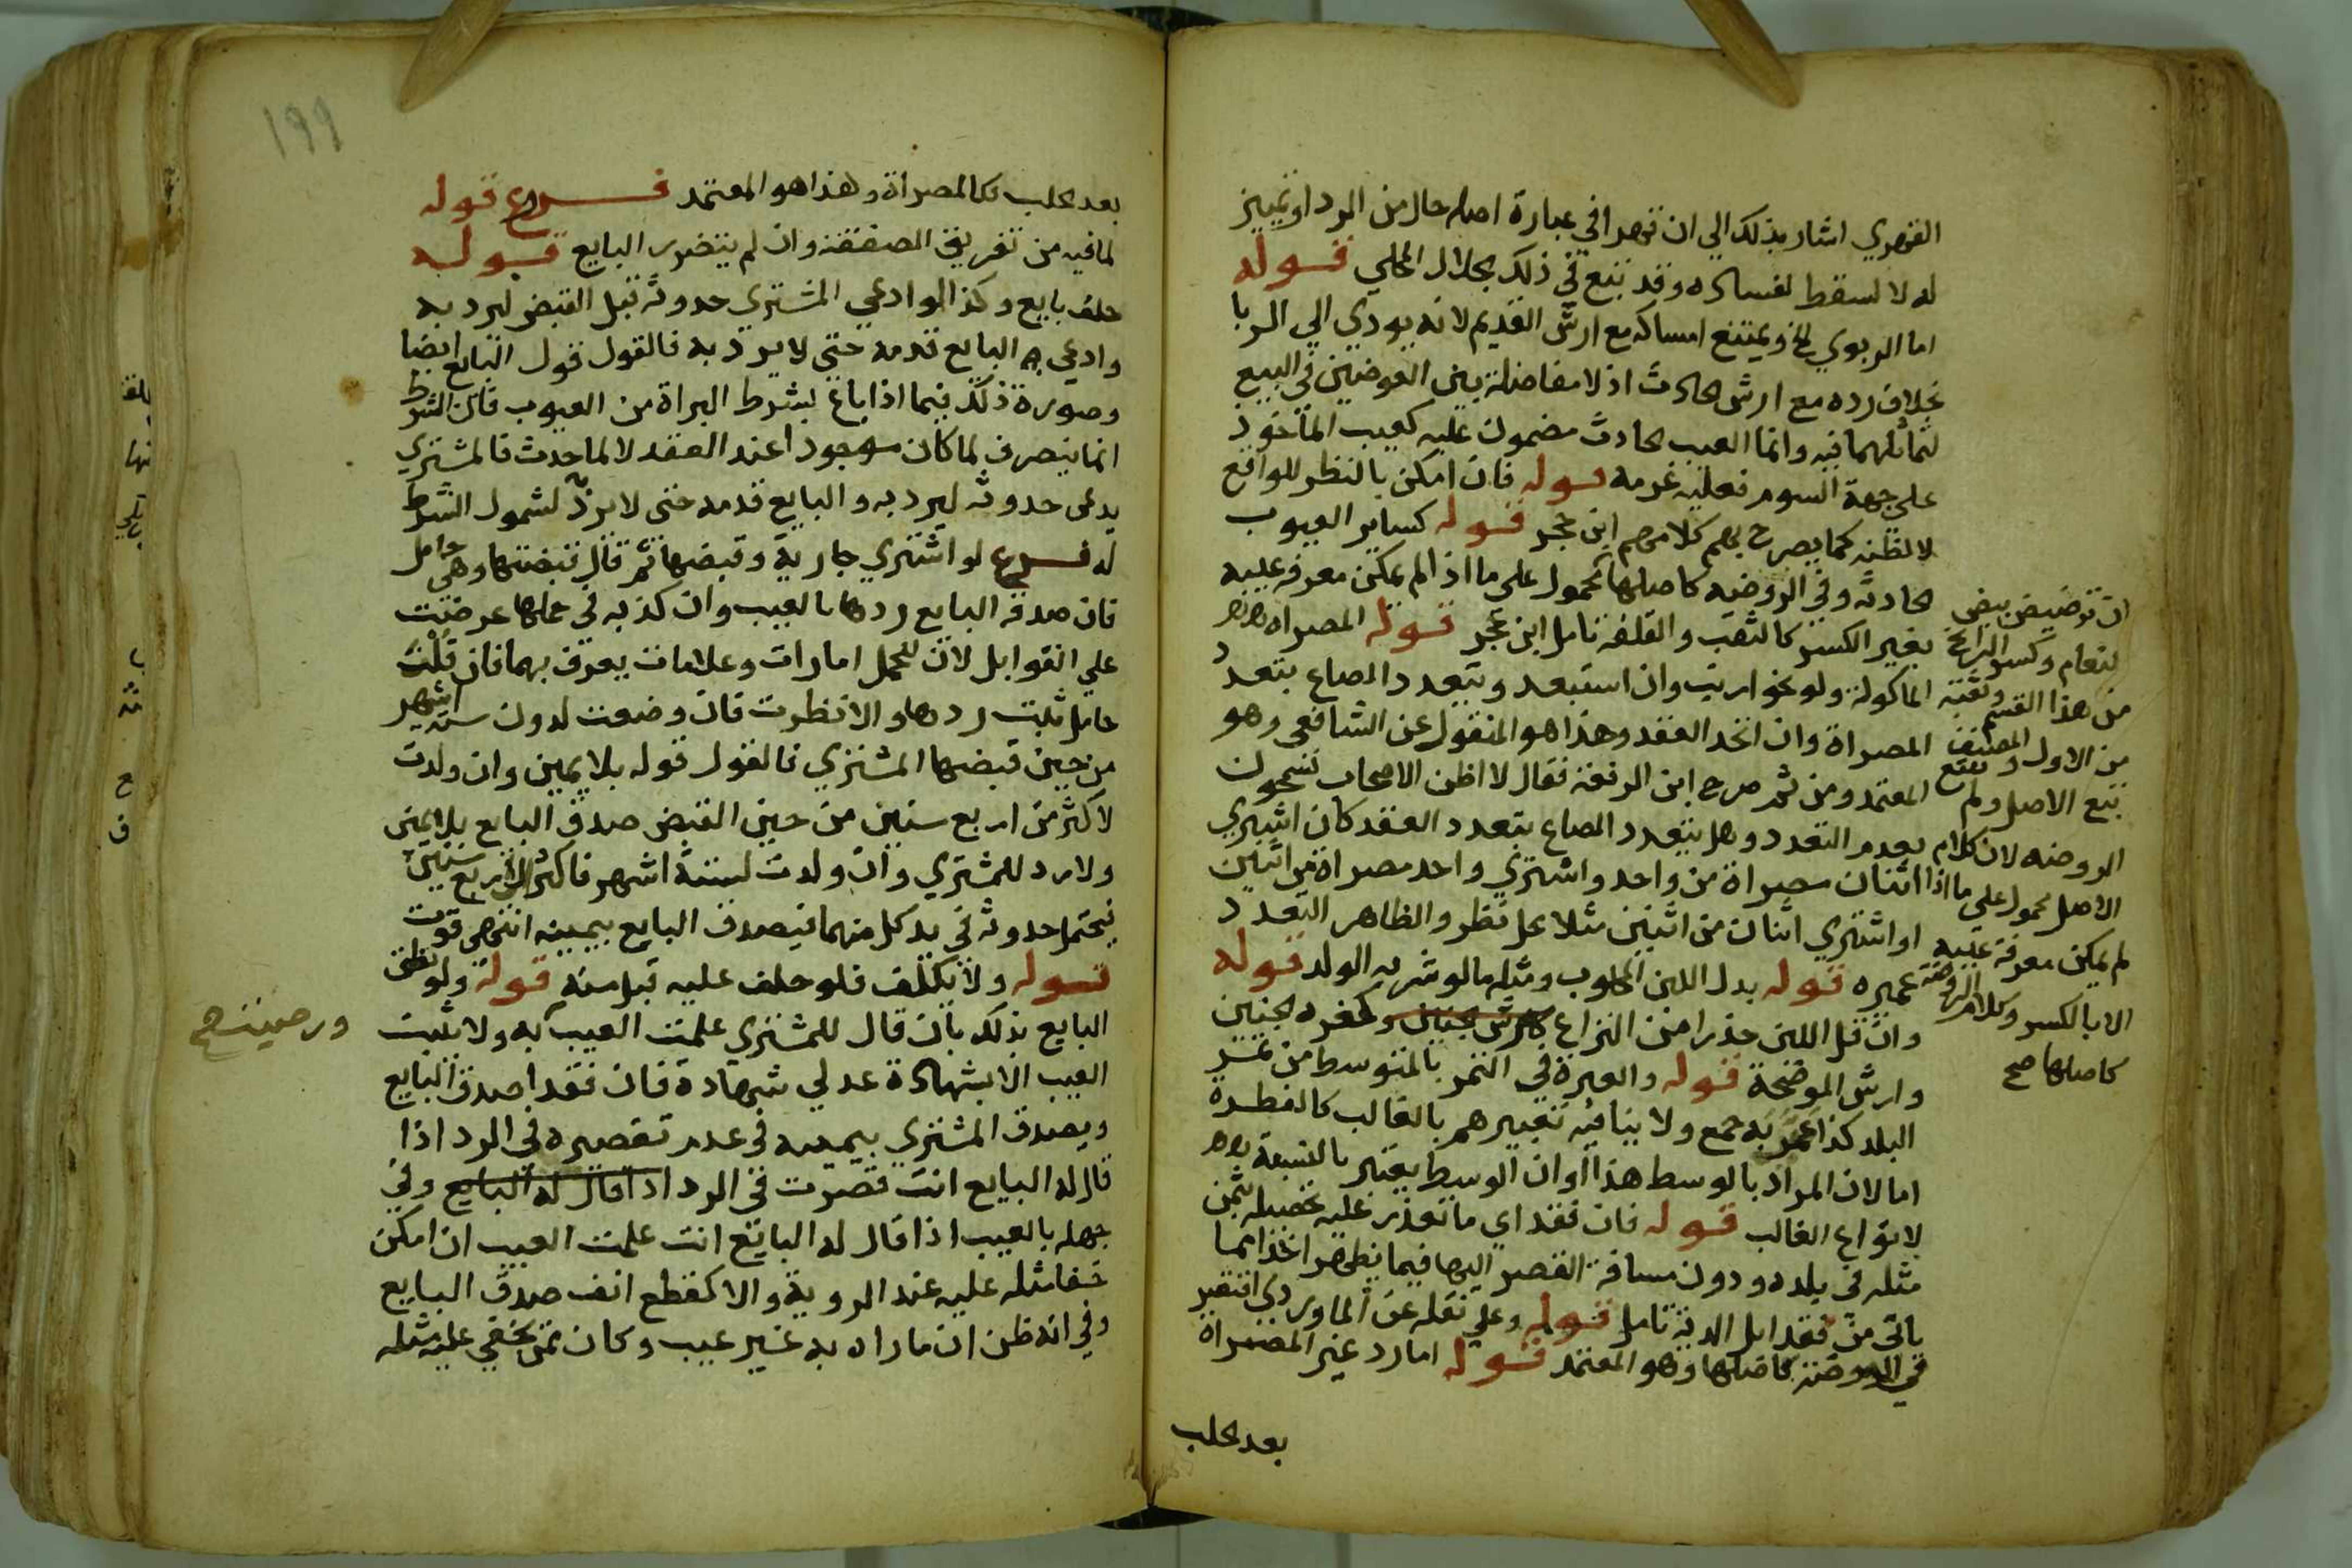 القهري اشار بذلك الي ان قهرا في عبارة اصله حال من الرد او تمييز
له لا لسقط لفساده وقد تبع في ذلك الجلال المحلي قوله
اما الربوي الخ ويمتنع امساكه مع ارش القديم لانه يودي الي الربا
بخلاف رده مع ارش الحادث اذ لا مفاضلة بين العوضين في البيع
لتماثلهما فيه وانما العيب الحادث مضمون عليه كعيب الماخوذ
علي جهة السوم فعليه غرمه قوله فان امكن بالنظر للواقع
لا لظنه كما يصرح به كلامهم ابن حجر قوله كساير العيوب
الحادثه وفي الروضه كاصلها محمول علي ما اذا لم يمكن معرفة عيبه
بغير الكسر كالثقب والقلفه تامل ابن حجر قوله المصراه
الماكولة ولو نحو ارنب وان استبعد ويتعدد الصاع بتعدد
المصراة وان اتحد العقد وهذا هو المنقول عن الشافعي وهو
المعتمد ومن ثم صرح ابن الرفعة فقال لا اظن الاصحاب يسمحون
بعدم التعدد وهل يتعدد الصاع بتعدد العقد كان اشتري
اثنان مصراة من واحد واشتري واحد مصراة من اثنين
او اشتري اثنان من اثنين مثلا محل نظر والظاهر التعدد
عميره قوله بدل اللبن المحلوب ومثله مالو شربه الولد قوله
وان قل اللبن حذرا من النزاع كارش جنين وكغرة الجنين
وارش الموضحة قوله والعبرة في التمر بالمتوسط من تمر
البلد كذا عبر به جمع ولا ينافيه تعبيرهم بالغالب كالفطرة
اما لان المراد بالوسط هذا او ان الوسط يعتبر بالنسبة
لانواع الغالب قوله فان فقد اي ما تعذر عليه تحصيله بثمن
مثله في بلده ودون مسافة القصر اليها فيما يظهر اخذا مما
ياتي من فقد ابل الدية تامل قوله وعلي نقله عن الماوردي اقتصر
في الروضة كاصلها وهو المعتمد قوله اما رد غير المصراة
بعد الحلب
ان ترضيض بيض
لنعام وكسر الرانج
من هذا القسم وثقبه
من الاول المصنف
تبع الاصل ولم يتبع
الروضه لان كلام
الاصل محمول علي ما اذا
لم يمكن معرفة عيبه
الا بالكسر وكلام الروضة
كاصلها صح
١٩٩
بعد الحلب فكالمصراة وهذا هو المعتمد فرع قوله
لما فيه من تفريق الصفقة وان لم يتضرر البايع قوله
حلف بايع وكذا لو ادعي المشتري حدوثه قبل القبض ليرد به
وادعي البايع قدمه حتي لا يرد به فالقول قول البايع ايضا
وصورة ذلك فيما اذا باع بشرط البراة من العيوب فان الشرط
انما ينصرف لما كان موجودا عند العقد لا لما حدث فالمشتري
يدعي حدوثه ليرد به والبايع قدمه حتي لا يرد لشمول الشرط
له فرع لو اشتري جارية وقبضها ثم قال قبضتها وهي حامل
فان صدقه البايع ردها بالعيب وان كذبه في حملها عرضت
علي القوابل لان للحمل امارات وعلامات يعرف بهما فان قلن
حامل ثبت ردها والا نظرت فان وضعت لدون ستة اشهر
من حين قبضها المشتري فالقول قوله بلا يمين وان ولدت
لاكثر من اربع سنين من حين القبض صدق البايع بلا يمين
ولا رد للمشتري وان ولدت لستة اشهر فاكثر الي اربع سنين
فيحتمل حدوثه في يد كل منهما فيصدق البايع بيمينه انتهي قوت
قوله ولا يكلف فلو حلف عليه قبل منه قوله ولو نطق
البايع بذلك بان قال للمشتري علمت العيب به ولا يثبت
العيب الا بشهادة عدلي شهادة فان فقدا صدق البايع
ويصدق المشتري بيمينه في عدم تقصيره في الرد اذا
قال له البايع انت قصرت في الرد اذا قال له البايع وفي
جهله بالعيب اذا قال له البايع انت علمت العيب ان امكن
خفا مثله عليه عند الروية والا كقطع انف صدق البايع
وفي انه ظن ان ما راه به غير عيب وكان ممن يخفي عليه مثله
ورضيته صح